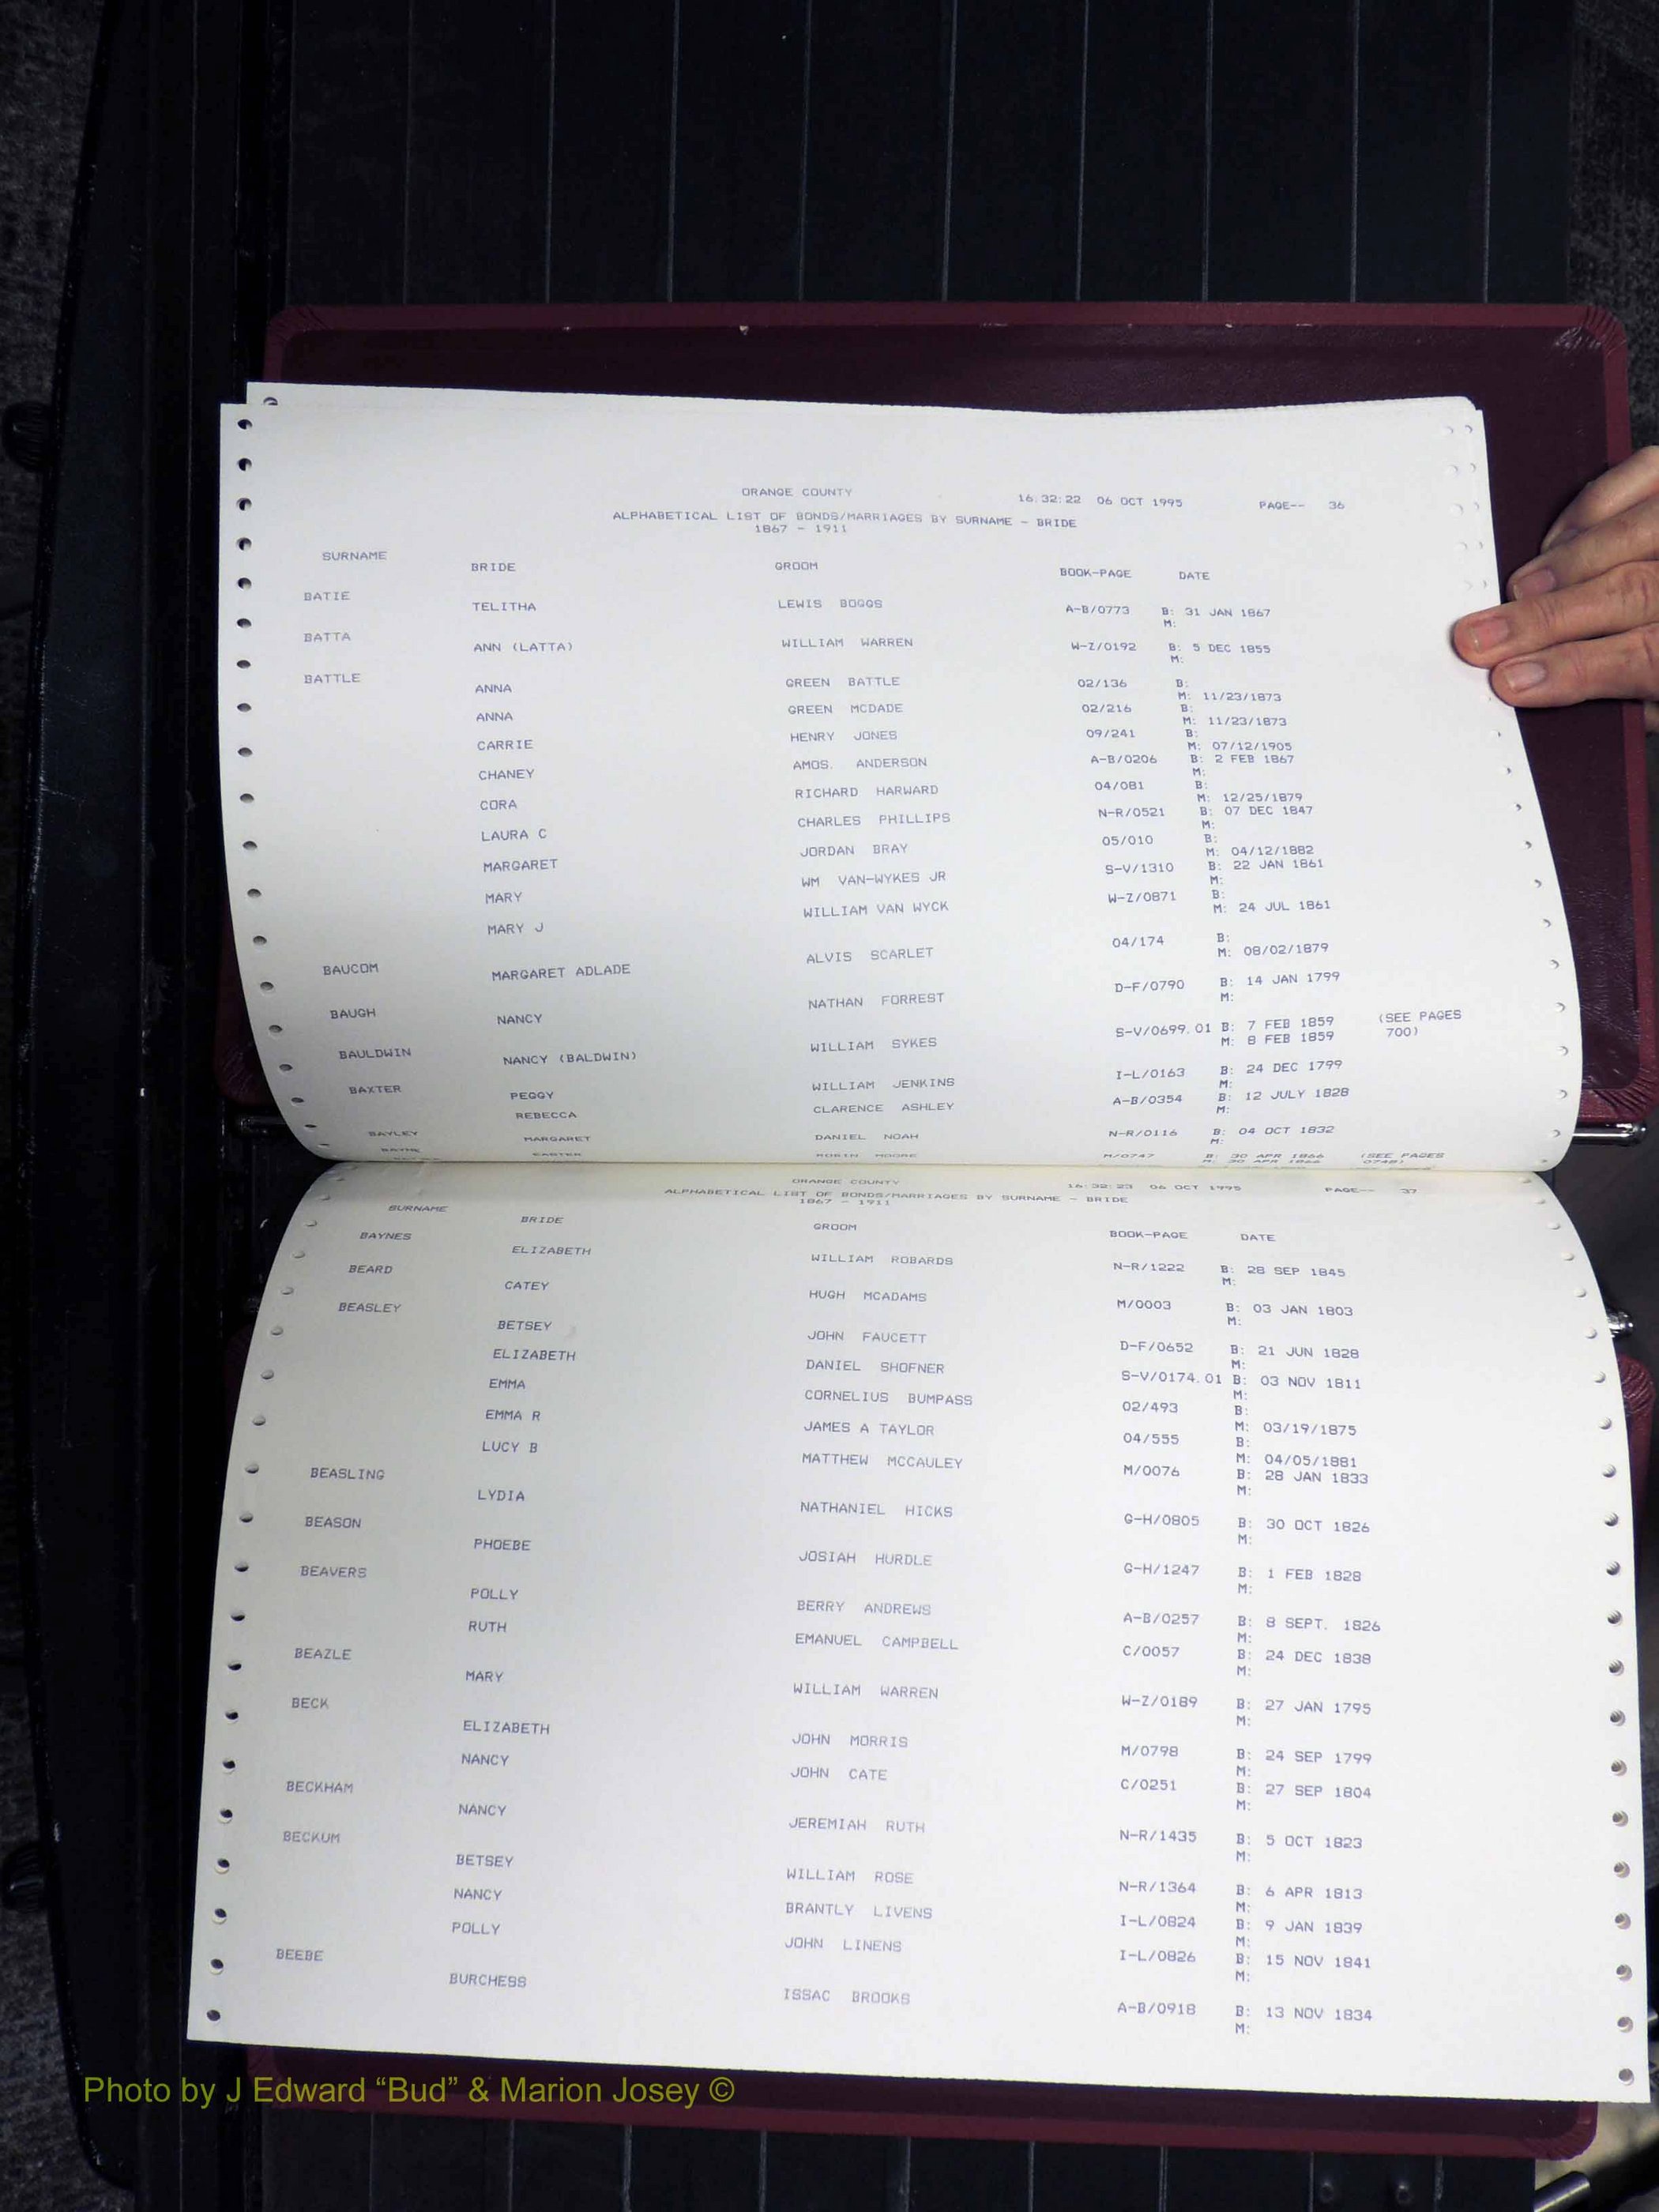 ORANGE COUNTY 16:32:22 06 OCT 1995 PAGE-- 36
ALPHABETICAL LIST OF BONDS/MARRIAGES BY SURNAME - BRIDE
1867 - 1911
SURNAME BRIDE GROOM BOOK-PAGE DATE
BATIE
TELITHA LEWIS BOGGS A-B/0773 B: 31 JAN 1867
M:
BATTA
ANN (LATTA) WILLIAM WARREN W-Z/0192 B: 5 DEC 1855
M:
BATTLE
ANNA GREEN BATTLE 02/136 B:
M: 11/23/1873
ANNA GREEN MCDADE 02/216 B:
M: 11/23/1873
CARRIE HENRY JONES 09/241 B:
M: 07/12/1905
CHANEY AMOS. ANDERSON A-B/0206 B: 2 FEB 1867
M:
CORA RICHARD HARWARD 04/081 B:
M: 12/25/1879
LAURA C CHARLES PHILLIPS N-R/0521 B: 07 DEC 1847
M:
MARGARET JORDAN BRAY 05/010 B:
M: 04/12/1882
MARY WM VAN-WYKES JR S-V/1310 B: 22 JAN 1861
M:
MARY J WILLIAM VAN WYCK W-Z/0871 B:
M: 24 JUL 1861
BAUCOM
MARGARET ADLADE ALVIS SCARLET 04/174 B:
M: 08/02/1879
BAUGH
NANCY NATHAN FORREST D-F/0790 B: 14 JAN 1799
M:
BAULDWIN
NANCY (BALDWIN) WILLIAM SYKES S-V/0699.01 B: 7 FEB 1859 (SEE PAGES
M: 8 FEB 1859 700)
BAXTER
PEGGY WILLIAM JENKINS I-L/0163 B: 24 DEC 1799
M:
REBECCA CLARENCE ASHLEY A-B/0354 B: 12 JULY 1828
M:
BAYLEY
MARGARET DANIEL NOAH N-R/0116 B: 04 OCT 1832
M:
BAYNE
MOORE M/0747 B: 30 APR 1866 (SEE PAGES
M: 30 APR 1866 0748)
ORANGE COUNTY 16:32:23 06 OCT 1995 PAGE-- 37
ALPHABETICAL LIST OF BONDS/MARRIAGES BY SURNAME - BRIDE
1867 - 1911
SURNAME BRIDE GROOM BOOK-PAGE DATE
BAYNES
ELIZABETH WILLIAM ROBARDS N-R/1222 B: 28 SEP 1845
M:
BEARD
CATEY HUGH MCADAMS M/0003 B: 03 JAN 1803
M:
BEASLEY
BETSEY JOHN FAUCETT D-F/0652 B: 21 JUN 1828
M:
ELIZABETH DANIEL SHOFNER S-V/0174.01 B: 03 NOV 1811
M:
EMMA CORNELIUS BUMPASS 02/493 B:
M: 03/19/1875
EMMA R JAMES A TAYLOR 04/555 B:
M: 04/05/1881
LUCY B MATTHEW MCCAULEY M/0076 B: 28 JAN 1833
M:
BEASLING
LYDIA NATHANIEL HICKS G-H/0805 B: 30 OCT 1826
M:
BEASON
PHOEBE JOSIAH HURDLE G-H/1247 B: 1 FEB 1828
M:
BEAVERS
POLLY BERRY ANDREWS A-B/0257 B: 8 SEPT. 1826
M:
RUTH EMANUEL CAMPBELL C/0057 B: 24 DEC 1838
M:
BEAZLE
MARY WILLIAM WARREN W-Z/0189 B: 27 JAN 1795
M:
BECK
ELIZABETH JOHN MORRIS M/0798 B: 24 SEP 1799
M:
NANCY JOHN CATE C/0251 B: 27 SEP 1804
M:
BECKHAM
NANCY JEREMIAH RUTH N-R/1435 B: 5 OCT 1823
M:
BECKUM
BETSEY WILLIAM ROSE N-R/1364 B: 6 APR 1813
M:
NANCY BRANTLY LIVENS I-L/0824 B: 9 JAN 1839
M:
POLLY JOHN LINENS I-L/0826 B: 15 NOV 1841
M:
BEEBE
BURCHESS ISSAC BROOKS A-B/0918 B: 13 NOV 1834
M:
Photo by J Edward “Bud” & Marion Josey ©